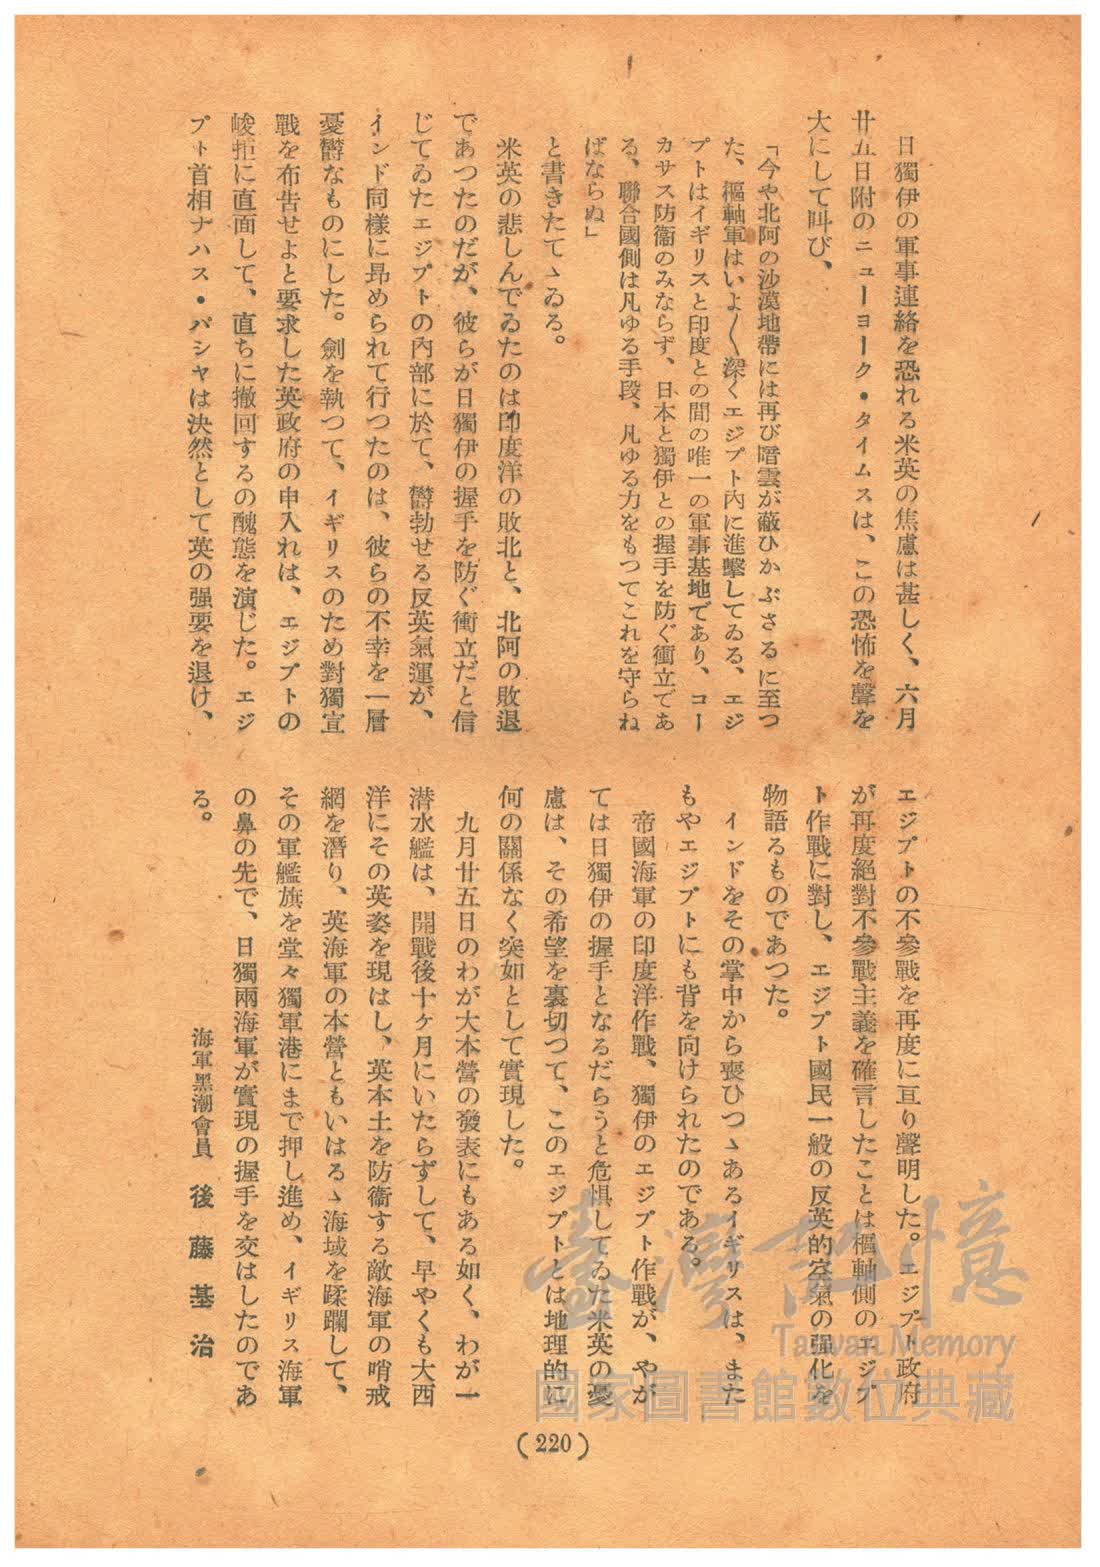 日獨伊の軍事連絡を恐れる米英の焦慮は甚しく、六月
廿五日附のニューヨーク・タイムスは、この恐怖を聲を
大にして叫び、
「今や北阿の沙漠地帶には再び暗雲が蔽ひかぶさるに至つ
た、樞軸軍はいよ〱深くエジプト內に進擊してゐる、エジ
プトはイギリスと印度との間の唯一の軍事基地であり、コー
カサス防衞のみならず、日本と獨伊との握手を防ぐ衝立であ
る、聯合國側は凡ゆる手段、凡ゆる力をもつてこれを守らね
ばならぬ」
と書きたてゝゐる。
米英の悲しんでゐたのは印度洋の敗北と、北阿の敗退
であつたのだが、彼らが日獨伊の握手を防ぐ衝立だと信
じてゐたエジプトの內部に於て、欝勃せる反英氣運が、
インド同樣に昂められて行つたのは、彼らの不幸を一層
憂欝なものにした。劍を執つて、イギリスのため對獨宣
戰を布告せよと要求した英政府の申入れは、エジプトの
峻拒に直面して、直ちに撤回するの醜態を演じた。エジ
プト首相ナハス・パシヤは決然として英の强要を退け、
エジプトの不參戰を再度に亘り聲明した。エジプト政府
が再度絕對不參戰主義を確言したことは樞軸側のエジプ
ト作戰に對し、エジプト國民一般の反英的空氣の强化を
物語るものであつた。
インドをその掌中から喪ひつゝあるイギリスは、また
もやエジプトにも背を向けられたのである。
帝國海軍の印度洋作戰、獨伊のエジプト作戰が、やが
ては日獨伊の握手となるだらうと危惧してゐた米英の憂
慮は、その希望を裏切つて、このエジプトとは地理的に
何の關係なく突如として實現した。
九月廿五日のわが大本營の發表にもある如く、わが一
潜水艦は、開戰後十ケ月にいたらずして、早やくも大西
洋にその英姿を現はし、英本土を防衞する敵海軍の哨戒
網を潛り、英海軍の本營ともいはるゝ海域を蹂躙して、
その軍艦旗を堂々獨軍港にまで押し進め、イギリス海軍
の鼻の先で、日獨兩海軍が實現の握手を交はしたのであ
る。
海軍黑潮會員 後藤基治
(220)
臺灣記憶
Taiwan Memory
國家圖書館數位典藏